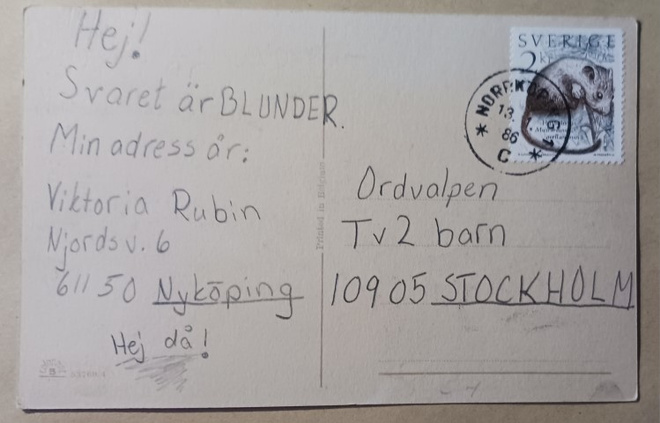 Hej!
Svaret är BLUNDER.
Min adress är:
Viktoria Rubin
Njordsv. 6
611 50 Nyköping
Hej då!
Printed in
SVERIGE
2 kr
NORRKÖPING 1
13.
86
* C *
Ordvalpen
Tv2 barn
10905 STOCKHOLM